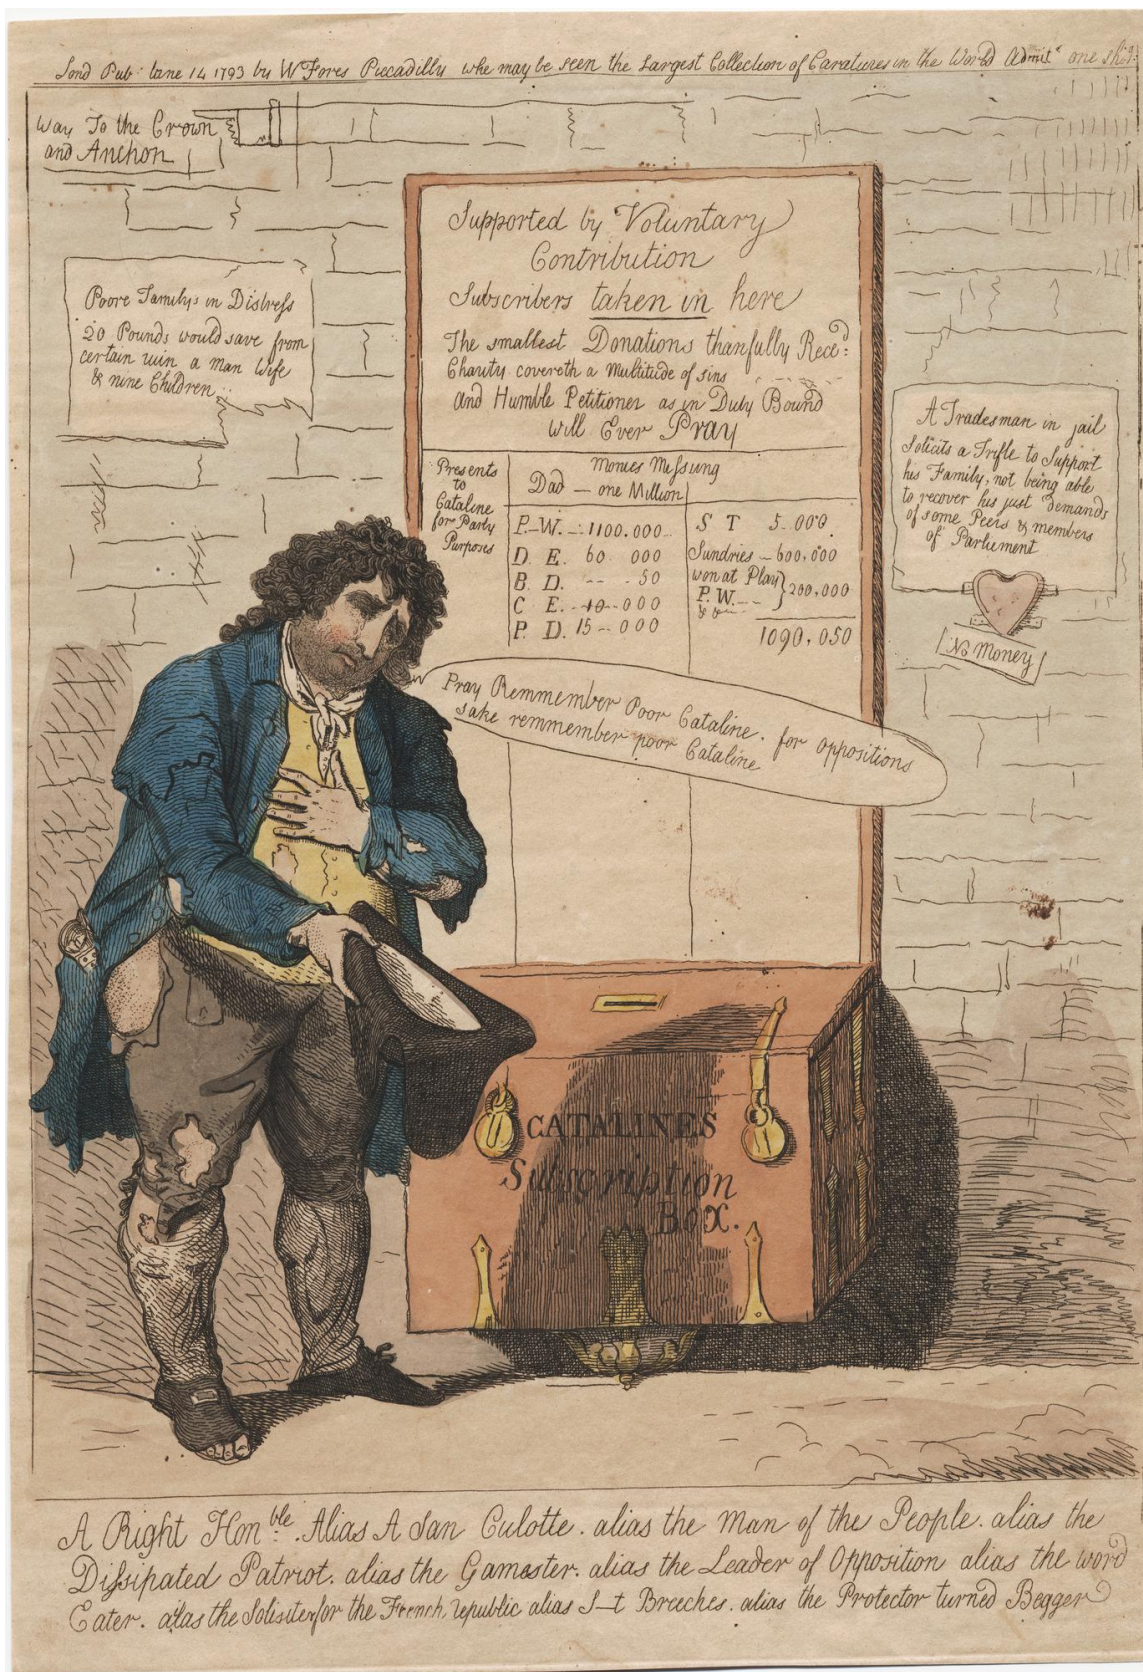 Lond Pub: June 14 1793 by W Fores Piccadilly whe may be seen the Largest Collection of Caratures in the World Admit.ᵉ one
Way To the Crown
and Anchon
Poore Family's in Distress
20 Pounds would save from
certain ruin a man Wife
& nine Children
Supported by Voluntary
Contribution
Subscribers taken in here
The smallest Donations thanfully Rece.d:
Charity covereth a Multitude of sins
and Humble Petitioner as in Duty Bound
will Ever Pray
Presents
to
Cataline
for Party
Purposes
Monies Missung
Dad — one Million
P. W. — 1100.000
D. E. 60 000
B. D. -- - 50
C E. -10-000
P. D. 15--000
S T 5-000
Sundries — 600,000
won at Play
P. W. -- } 200,000
1090,050
A Tradesman in jail
Solicits a Trifle to Support
his Family, not being able
to recover his just demands
of some Peers & members
of Parlument
No Money
Pray Remmember Poor Cataline. for oppositions
sake remmember poor Cataline
CATALINES
Subscription
BOX.
A Right Hon.ble Alias A San Culotte. alias the Man of the People. alias the
Dissipated Patriot. alias the Gamester. alias the Leader of Opposition alias the word
Eater. alas the Solisiter for the French republic alias S—t Breeches. alias the Protector turned Begger